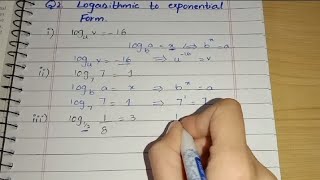 Q2 Logarithmic to exponential
Form.
i) logᵤ v = -16
log_b a = x ⇔ b^x = a
logᵤ v = -16 ⇒ u^-16 = v
ii) log₇ 7 = 1
log_b a = x ⇒ b^x = a
log₇ 7 = 1 ⇒ 7¹ = 7
iii) log_1/2 1/8 = 3